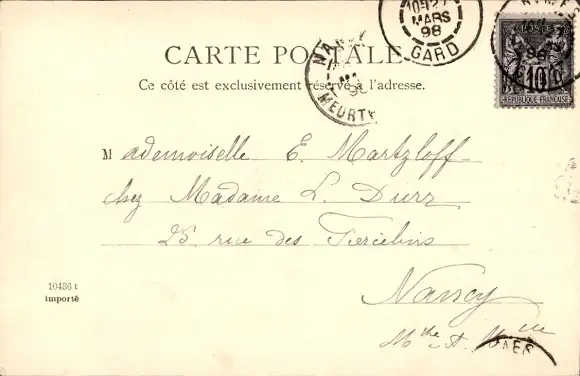 CARTE POSTALE.
Ce côté est exclusivement réservé à l'adresse.
NANCY
MEURTHE
MARS
98
GARD
NIMES
POSTES
10
REPUBLIQUE FRANÇAISE
Mademoiselle E. Martzloff
chez Madame L. Durr
25 rue des Tiercelins
Nancy
Mthe et Mlle
10436 t
importé